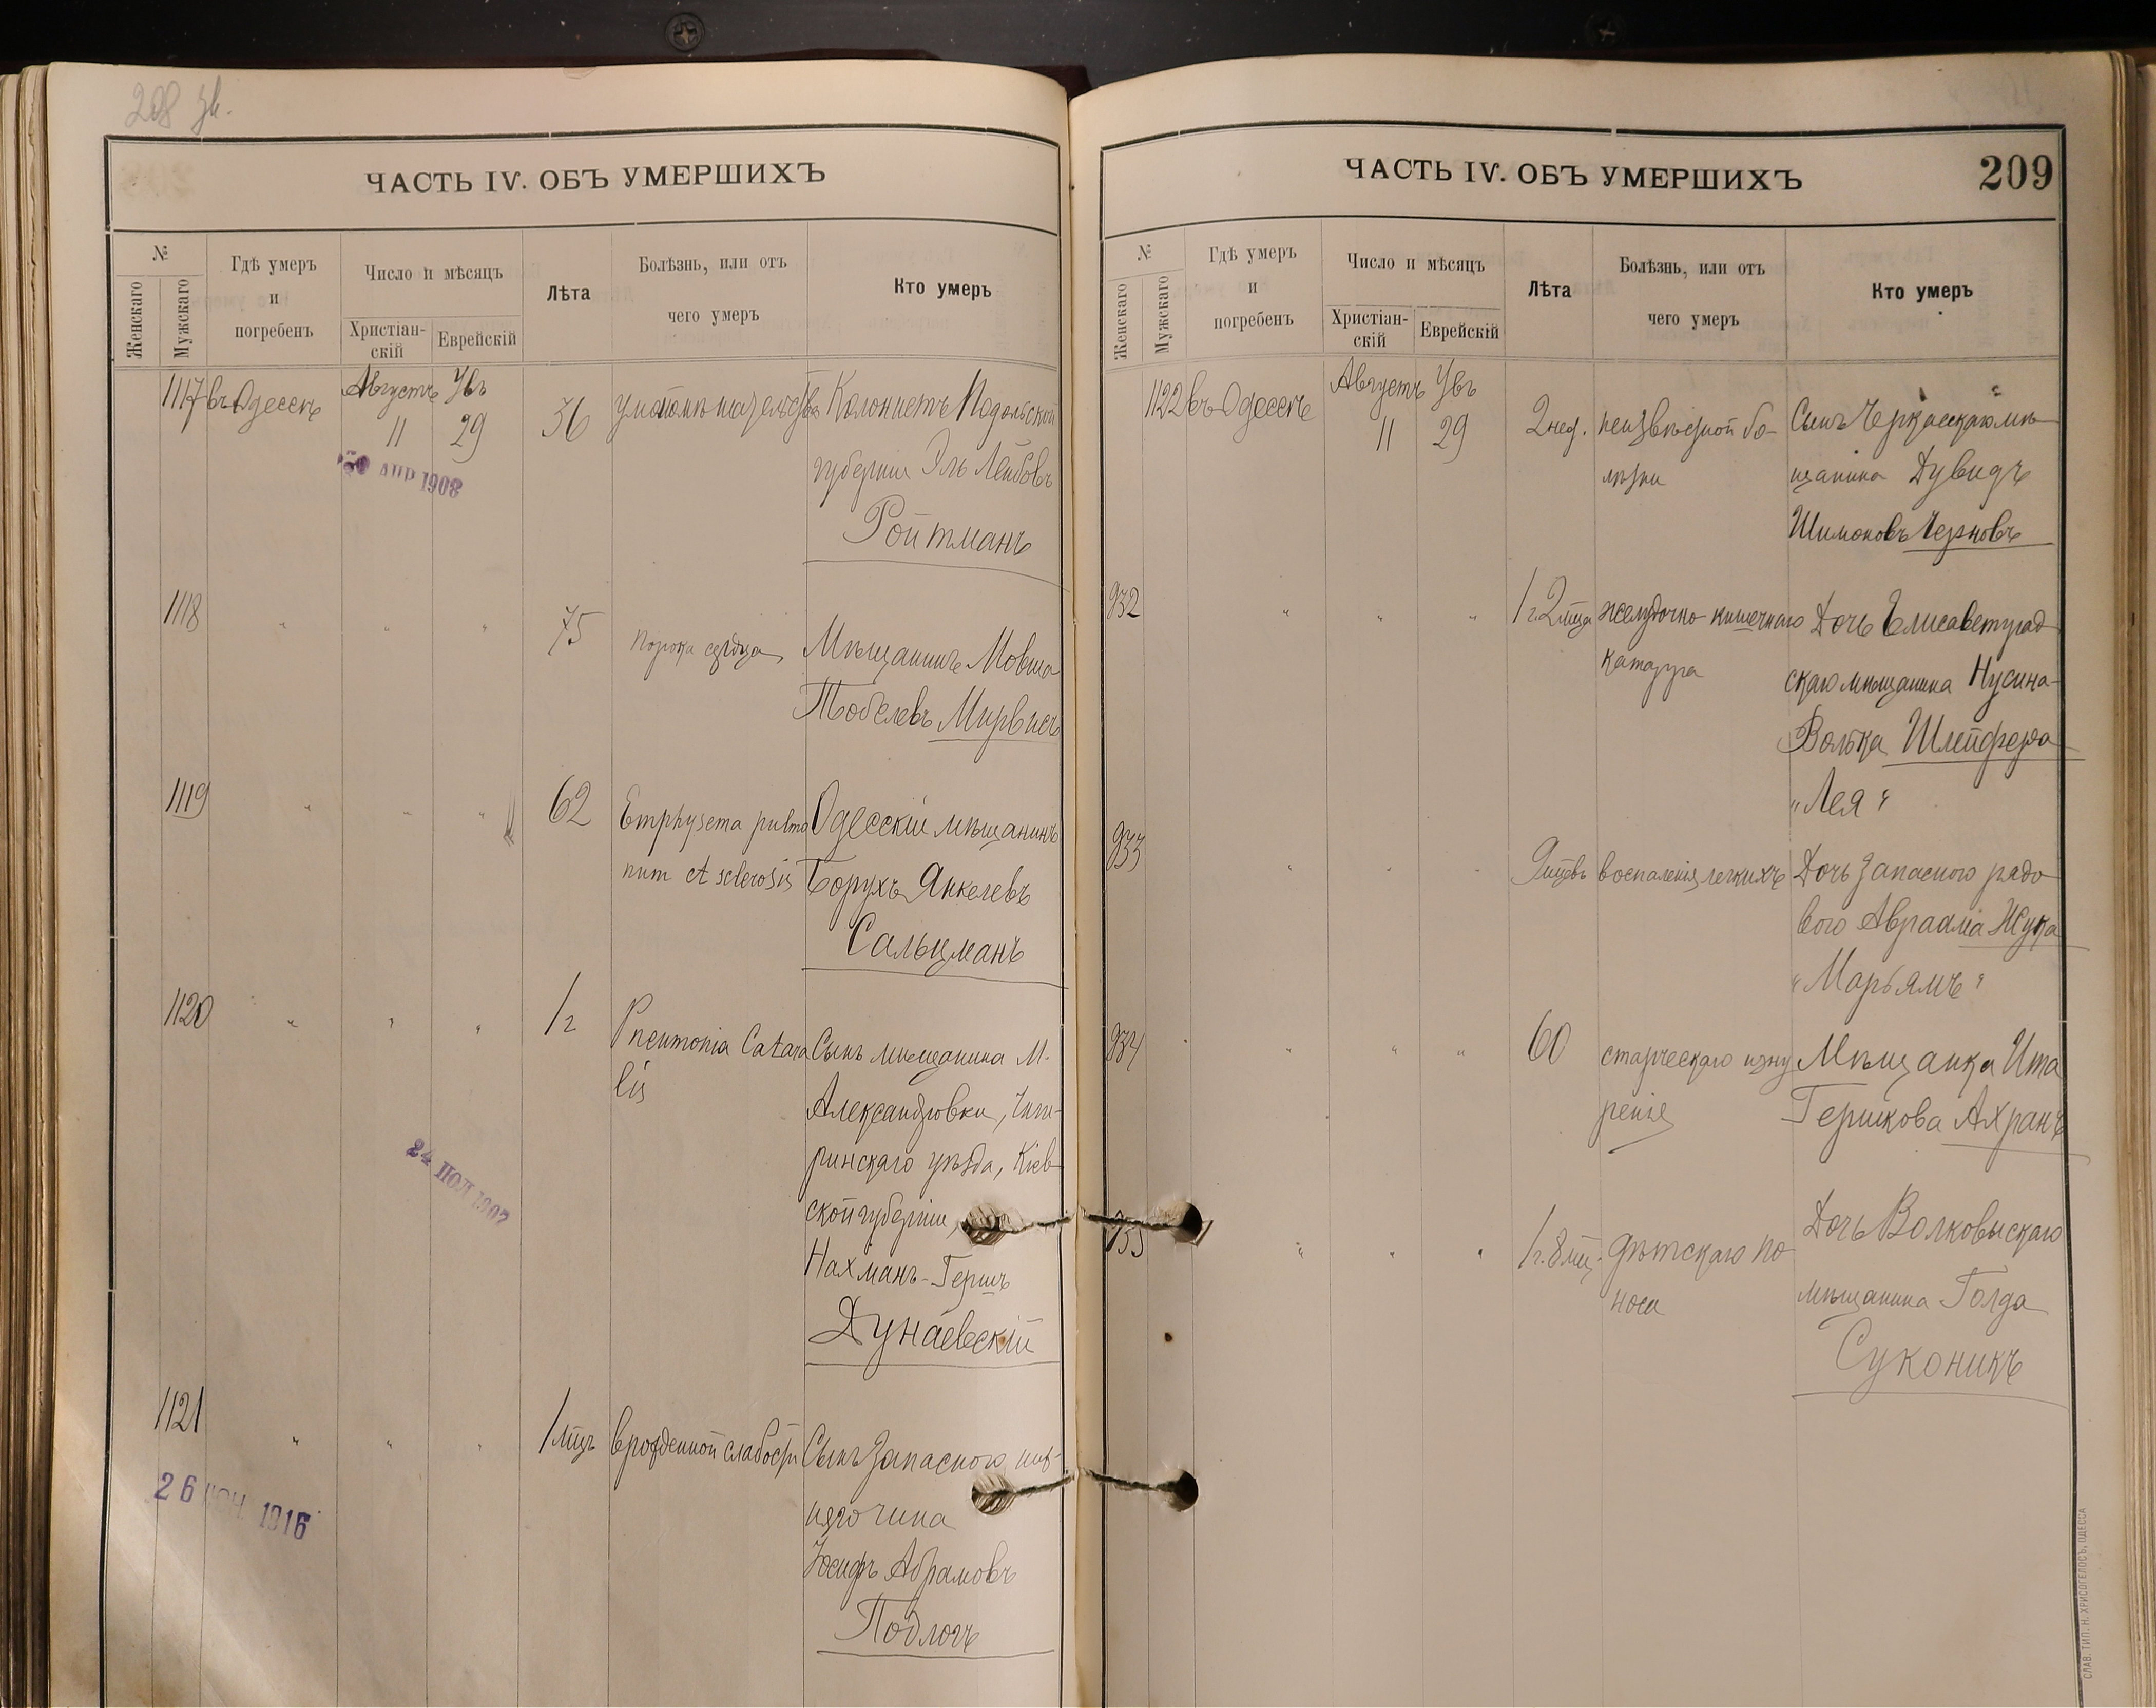 208 зв.
ЧАСТЬ IV. ОБЪ УМЕРШИХЪ
№
Женскаго
Мужскаго
Гдѣ умеръ
и
погребенъ
Число и мѣсяцъ
Христіан-
скій
Еврейскій
Лѣта
Болѣзнь, или отъ
чего умеръ
Кто умеръ
1117 въ Одессѣ
Августъ
11
Увъ
29
36
Колонистъ Подольской
губерніи Эль Лейбовъ
Ройтманъ
АПР 1908
1118 " " " 75
порока сердца
Мѣщанинъ Мовша
Тобелевъ Мирвисъ
1119 " " " 62
Emphysema pulmo
num et sclerosis
Одесскій мѣщанинъ
Борухъ Янкелевъ
Сальцманъ
1120 " " " 1 г
Pneumonia Catara
lis
Сынъ мѣщанина м.
Александровки, Чиги-
ринскаго уѣзда, Кіев-
ской губерніи,
Нахманъ-Гершъ
Дунаевскій
24 1907
1121 " " " 1 мцъ
врожденной слабости
Сынъ запасного ниж-
няго чина
Іосифъ Абрамовъ
Подлогъ
26 1916
ЧАСТЬ IV. ОБЪ УМЕРШИХЪ
209
№
Женскаго
Мужскаго
Гдѣ умеръ
и
погребенъ
Число и мѣсяцъ
Христіан-
скій
Еврейскій
Лѣта
Болѣзнь, или отъ
чего умеръ
Кто умеръ
1122 въ Одессѣ
Августъ
11
Увъ
29
2 нед.
неизвѣстной бо-
лѣзни
Сынъ Черкасскаго мѣ-
щанина Дувидъ
Шимоновъ Черновъ
932 " " " 1 г. 2 мца
желудочно кишечнаго
катарра
Дочь Елисаветград
скаго мѣщанина Нусина-
Волька Шлейфера
"Лея"
933 " " " 9 мцевъ
воспаленія легкихъ
Дочь запасного рядо
вого Авраама Жука
"Марьямъ"
934 " " " 60
старческаго изну
ренія
Мѣщанка Ита
Гершкова Ахранъ
935 " " " 1 г. 8 мц.
дѣтскаго по-
носа
Дочь Волковыскаго
мѣщанина Голда
Суконикъ
СЛАВ. ТИП. Н. ХРИСОГЕЛОСЪ, ОДЕССА